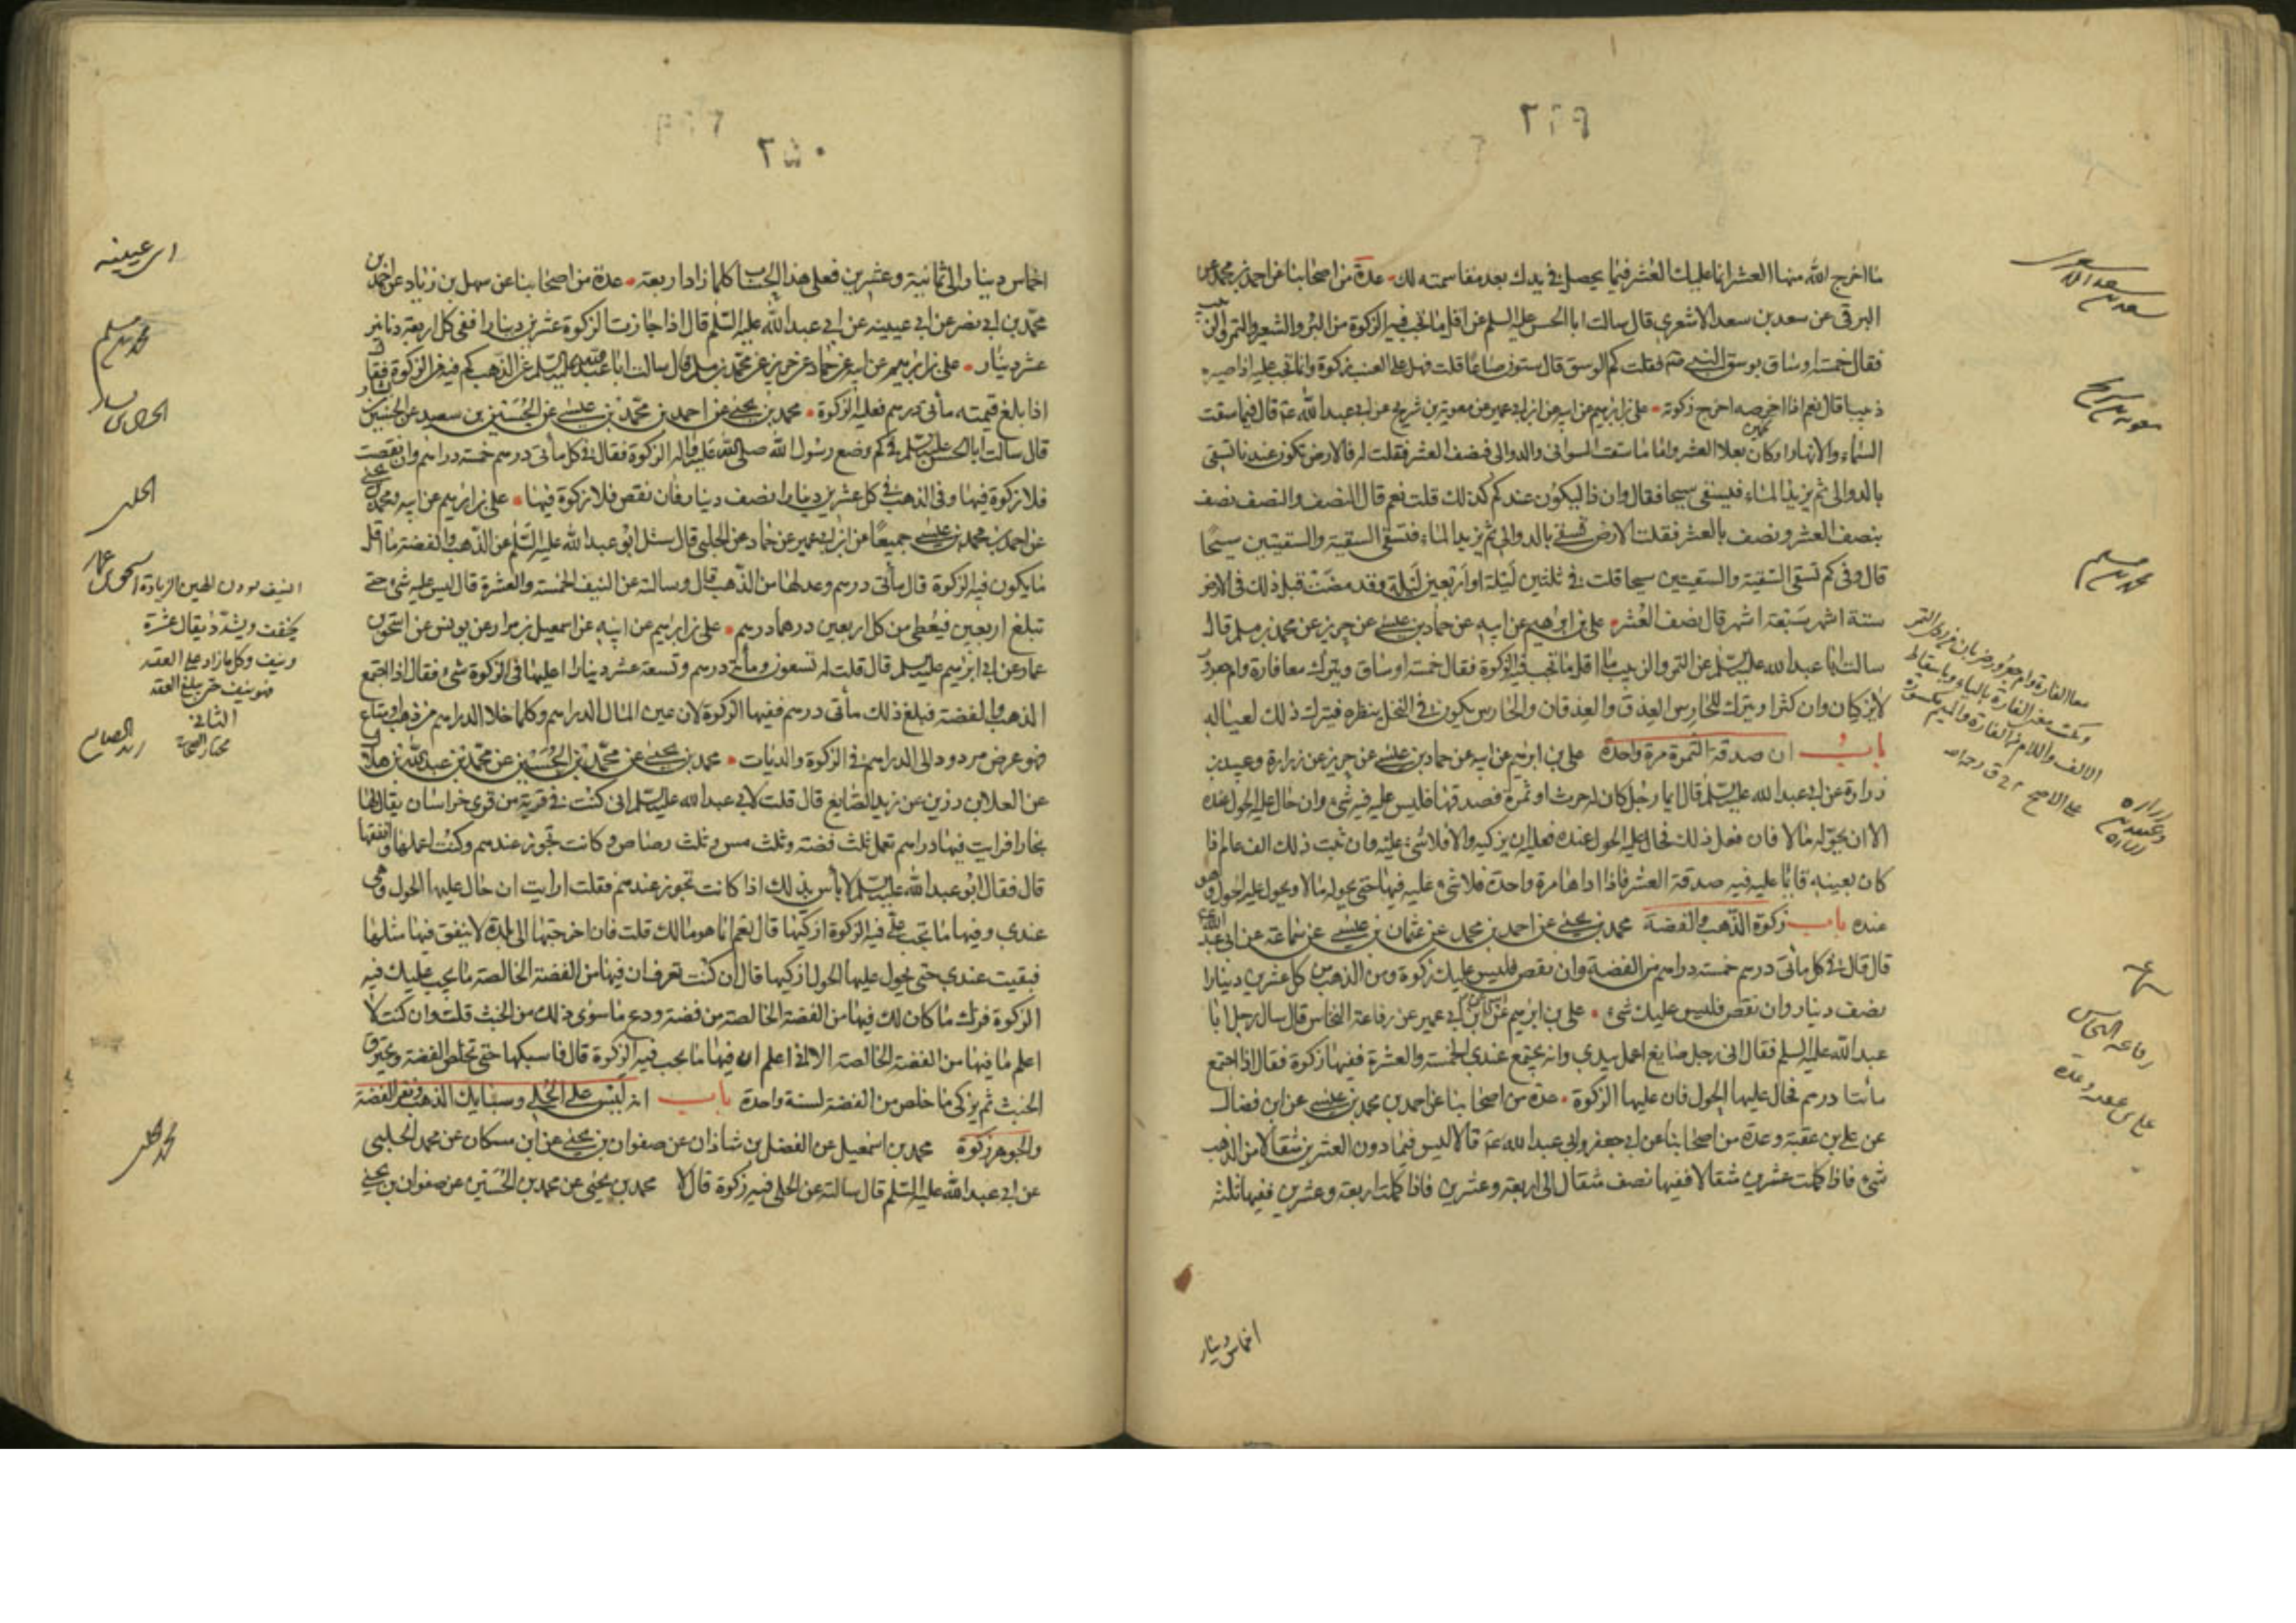 ٢٤٩
ما اخرج الله منها العشر انما عليك العشر فيما يحصل في يدك بعد مقاسمته لك عدة من اصحابنا عن احمد بن محمد عن
البرقى عن سعد بن سعد الاشعري قال سالت ابا الحسن عليه السلم عن اقل ما تجب فيه الزكوة من البر والشعير والتمر والزبيب
فقال خمسة اوساق بوسق النبي صم فقلت كم الوسق قال ستون صاعا قلت فهل على العنب زكوة وانما تجب عليه اذا صيره
ذبيبا قال نعم اذا اخرصه اخرج زكوته علي بن ابرهيم عن ابيه عن ابن ابي عمير عن معوية بن شريح عن ابي عبد الله عة قال فيما سقت
السماء والانهار او كان بعلا العشر واما ما سقت السواني والدوالى فنصف العشر فقلت له فالارض تكون عندنا تسقى
بالدوالى ثم يزيد الماء فيسقى سيحا فقال وان ذا ليكون عندكم كذلك قلت نعم قال النصف والنصف نصف
بنصف العشر ونصف بالعشر فقلت الارض تسقى بالدوالى ثم يزيد الماء فتسقى السقية والسقيتين سيحا
قال وفى كم تسقى السقية والسقيتين سيحا قلت في ثلثين ليلة او اربعين ليلة وقد مضت قبل ذلك في الارض
ستة اشهر سبعة اشهر قال نصف العشر علي بن ابرهيم عن ابيه عن حماد بن عيسى عن حريز عن محمد بن مسلم قال
سالت ابا عبد الله عليه السلم عن التمر والزبيب ما اقل ما تجب فيه الزكوة فقال خمسة اوساق ويترك معا فارة وام جعرور
لا يزكيان وان كثرا ويترك للحارس العذق والعذقان والحارس يكون في النخل ينظره فيترك ذلك لعياله
باب ان صدقة الثمرة مرة واحدة علي بن ابرهيم عن ابيه عن حماد بن عيسى عن حريز عن زرارة وعبيد بن
زرارة عن ابي عبد الله عليه السلم قال ايما رجل كان له حرث او ثمرة فصدقها فليس عليه فيه شيء وان حال عليه الحول عنده
الا ان يحوله مالا فان فعل ذلك فحال عليه الحول عنده فعليه ان يزكيه والا فلا شيء عليه وان ثبت ذلك الف عام اذا
كان بعينه فانما عليه فيه صدقة العشر فاذا اداها مرة واحدة فلا شيء عليه فيها حتى يحوله مالا ويحول عليه الحول وهو
عنده باب زكوة الذهب والفضة محمد بن يحيى عن احمد بن محمد عن عثمان بن عيسى عن سماعة عن ابي عبد الله ع
قال قال في كل مائتى درهم خمسة دراهم من الفضة وان نقص فليس عليك زكوة ومن الذهب من كل عشرين دينارا
نصف دينار وان نقص فليس عليك شيء علي بن ابرهيم عن ابيه عن ابن ابي عمير عن رفاعة النخاس قال سال رجل ابا
عبد الله عليه السلم فقال انى رجل صايغ اعمل بيدي وانه يجتمع عندي الخمسة والعشرة ففيها زكوة فقال اذا اجتمع
مائتا درهم فحال عليها الحول فان عليها الزكوة عدة من اصحابنا عن احمد بن محمد بن عيسى عن ابن فضال
عن علي بن عقبة وعدة من اصحابنا عن ابي جعفر وابي عبد الله عة قالا ليس فيما دون العشرين مثقالا من الذهب
شيء فاذا كملت عشرين مثقالا ففيها نصف مثقال الى اربعة وعشرين فاذا كملت اربعة وعشرين ففيها ثلثة
اخماس دينار
سعد بن سعد الاشعري
معوية بن شريح
محمد بن مسلم
سماعة
رفاعة النخاس
علي بن عقبة وعدة
٢٥٠
اخماس دينار الى ثمانية وعشرين فعلى هذا الحساب كلما زاد اربعة عدة من اصحابنا عن سهل بن زياد عن احمد بن
محمد بن ابي نصر عن ابن عيينه عن ابي عبد الله عليه السلم قال اذا جازت الزكوة عشرين دينارا ففى كل اربعة دنانير
عشر دينار علي بن ابرهيم عن ابيه عن حماد عن حريز عن محمد بن مسلم قال سالت ابا عبد الله عليه السلم عن الذهب كم فيه من الزكوة فقال
اذا بلغ قيمته مأتى درهم فعليه الزكوة محمد بن يحيى عن احمد بن محمد بن عيسى عن الحسين بن سعيد عن الحسين بن بشار
قال سالت ابا الحسن عليه السلم في كم وضع رسول الله صلى الله عليه واله الزكوة فقال في كل مأتى درهم خمسة دراهم وان نقصت
فلا زكوة فيها وفى الذهب في كل عشرين دينارا نصف دينار فان نقص فلا زكوة فيها علي بن ابرهيم عن ابيه ومحمد بن يحيى
عن احمد بن محمد بن عيسى جميعا عن ابن ابي عمير عن حماد عن الحلبي قال سئل ابو عبد الله عليه السلم عن الذهب والفضة ما اقل
ما يكون فيه الزكوة قال مأتى درهم وعدلها من الذهب قال وسالته عن النيف الخمسة والعشرة قال ليس عليه شيء حتى
تبلغ اربعين فيعطى من كل اربعين درهما درهم علي بن ابرهيم عن ابيه عن اسمعيل بن مرار عن يونس عن اسحق بن
عمار عن ابي ابرهيم عليه السلم قال قلت له تسعون ومأئة درهم وتسعة عشر دينارا اعليها في الزكوة شيء فقال اذا اجتمع
الذهب والفضة فبلغ ذلك مأتى درهم ففيها الزكوة لان عين المال الدراهم وكلما خلا الدراهم من ذهب او متاع
فهو عرض مردود الى الدراهم في الزكوة والديات محمد بن يحيى عن محمد بن الحسين عن محمد بن عبد الله بن هلال
عن العلا بن رزين عن زيد الصايغ قال قلت لابي عبد الله عليه السلم انى كنت في قرية من قرى خراسان يقال لها
بخارا فرايت فيها دراهم تعمل ثلث فضة وثلث مس وثلث رصاص وكانت تجوز عندهم وكنت اعملها وانفقها
قال فقال ابو عبد الله عليه السلم لا بأس بذلك اذا كانت تجوز عندهم فقلت ارايت ان حال عليها الحول وهى
عندي وفيها ما تجب على فيه الزكوة ازكيها قال نعم انما هو مالك قلت فان اخرجتها الى بلدة لا ينفق فيها مثلها
فبقيت عندي حتى يحول عليها الحول ازكيها قال ان كنت تعرف ان فيها من الفضة الخالصة ما يجب عليك فيه
الزكوة فزك ما كان لك فيها من الفضة الخالصة من فضة ودع ما سوى ذلك من الخبث قلت وان كنت لا
اعلم ما فيها من الفضة الخالصة الا انى اعلم ان فيها ما يجب فيه الزكوة قال فاسبكها حتى تخلص الفضة ويحترق
الخبث ثم يزكى ما خلص من الفضة لسنة واحدة باب انه ليس على الحلى وسبايك الذهب ونقر الفضة
والجوهر زكوة محمد بن اسمعيل عن الفضل بن شاذان عن صفوان بن يحيى عن ابن مسكان عن محمد الحلبى
عن ابي عبد الله عليه السلم قال سالته عن الحلى فيه زكوة قال لا محمد بن يحيى عن محمد بن الحسين عن صفوان بن يحيى
ابن عيينه
محمد بن مسلم
الحلبى
اسحق بن عمار
يخفف ويشدد يقال عشرة
ونيف وكل ما زاد على العقد
فهو نيف حتى يبلغ العقد
الثانى
مختار الصحاح
زيد الصايغ
محمد الحلبى